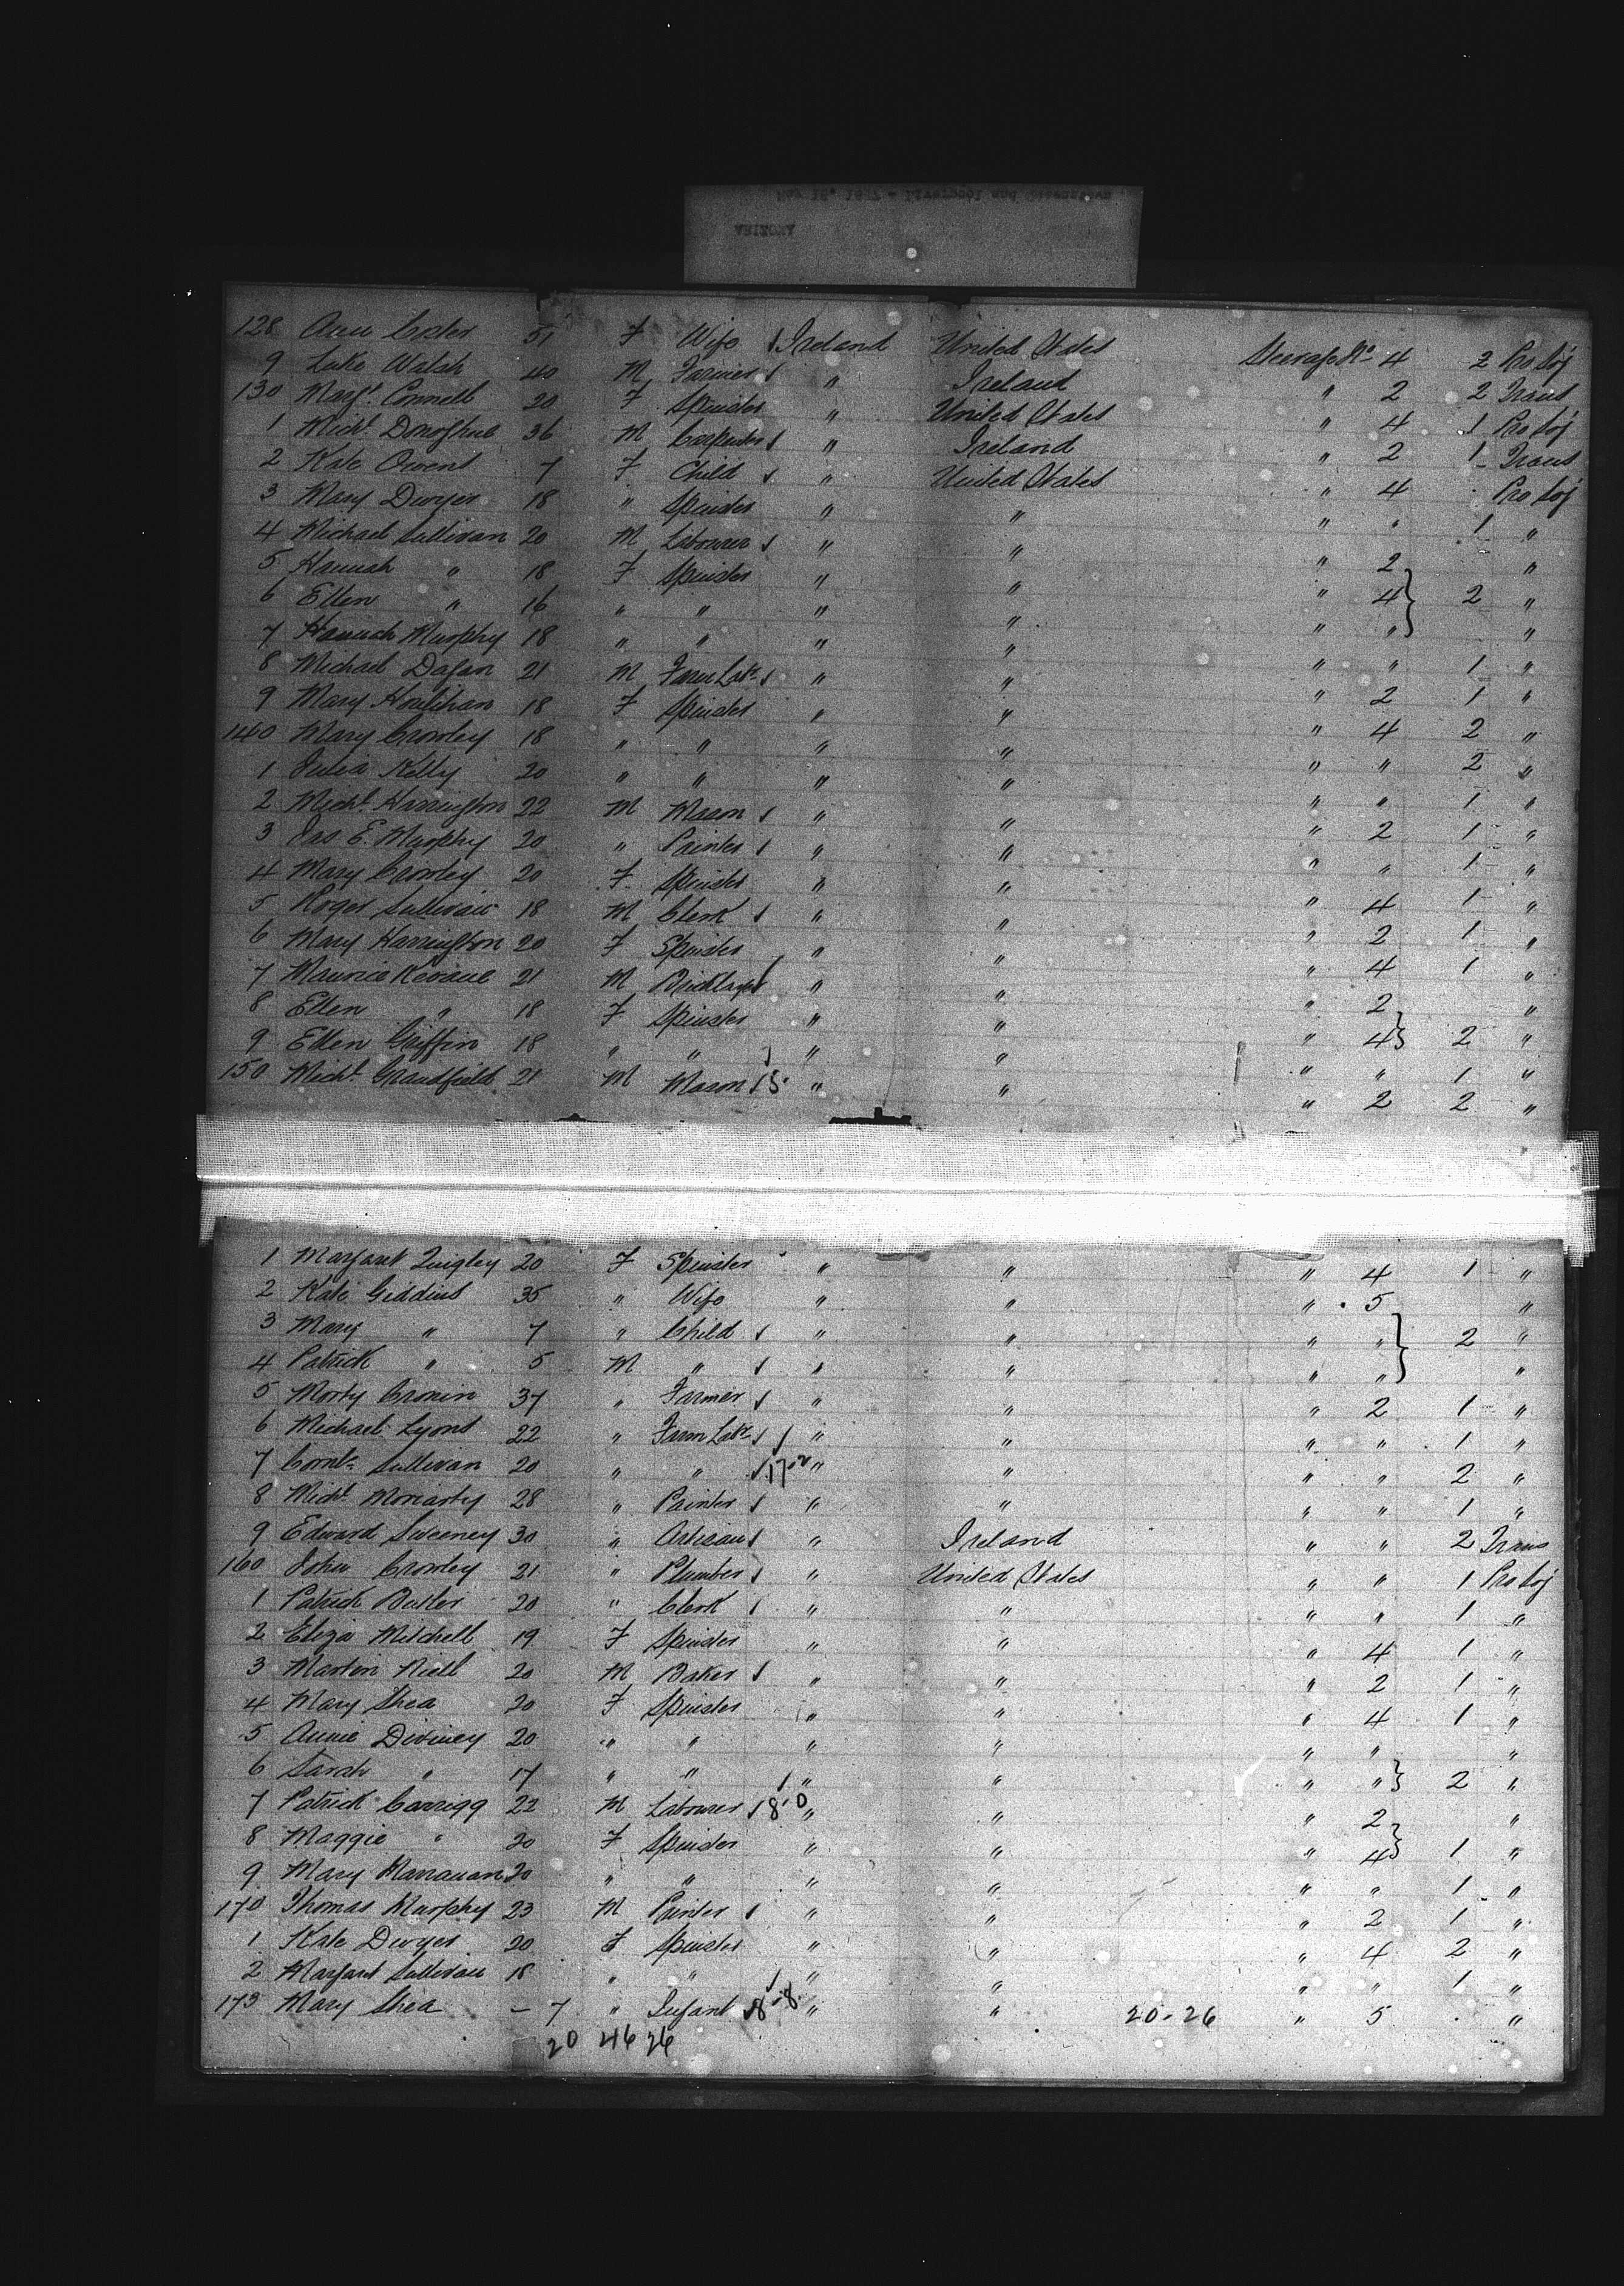 128 Ann Coxter 51 F Wife Ireland United States Steerage No 4 2 Pro Soj
9 Luke Walsh 40 M Farmer " Ireland " 2 2 Trans
130 Margt. Connell 20 F Spinster " United States " 4 1 Pro Soj
1 Michl. Donoghue 36 M Carpenter " Ireland " 2 1 Trans
2 Kate Owens 7 F Child " United States " 4 Pro Soj
3 Mary Dwyer 18 " Spinster " " " " 1 "
4 Michael Sullivan 20 M Labourer " " " 2 "
5 Hannah " 18 F Spinster " " " 4 2 "
6 Ellen " 16 " " " " " " "
7 Hannah Murphy 18 " " " " " " 1 "
8 Michael Dagan 21 M Farm Labr. " " " 2 1 "
9 Mary Houlihan 18 F Spinster " " " 4 2 "
140 Mary Crowley 18 " " " " " " 2 "
1 Julia Kelly 20 " " " " " " 1 "
2 Michl. Harrington 22 M Mason " " " 2 1 "
3 Jas E. Murphy 20 " Painter " " " " 1 "
4 Mary Crowley 20 F Spinster " " " 4 1 "
5 Roger Sullivan 18 M Clerk " " " 2 1 "
6 Mary Harrington 20 F Spinster " " " 4 1 "
7 Maurice Kevane 21 M Bricklayer " " " 2 "
8 Ellen " 18 F Spinster " " " 4 2 "
9 Ellen Griffin 18 " " " " " " 1 "
150 Michl. Grandfield 21 M Mason " " " 2 2 "
1 Margaret Quigley 20 F Spinster " " " 4 1 "
2 Kate Giddins 35 " Wife " " " 5 "
3 Mary " 7 " Child " " " " 2 "
4 Patrick " 5 M " " " " " "
5 Morty Cronin 37 " Farmer " " " 2 1 "
6 Michael Lyons 22 " Farm Labr. " " " " 1 "
7 Cornls. Sullivan 20 " " 17-2 " " " " 2 "
8 Michl. Moriarty 28 " Painter " " " " 1 "
9 Edward Sweeney 30 " Artisan " Ireland " " 2 Trans
160 John Crowley 21 " Plumber " United States " " 1 Pro Soj
1 Patrick Butler 20 " Clerk " " " " 1 "
2 Eliza Mitchell 19 F Spinster " " " 4 1 "
3 Martin Niell 20 M Baker " " " 2 1 "
4 Mary Shea 20 F Spinster " " " 4 1 "
5 Annie Diviney 20 " " " " " " "
6 Sarah " 17 " " " " " " 2 "
7 Patrick Carrigg 22 M Labourer 8-0 " " " 2 "
8 Maggie " 20 F Spinster " " " 4 1 "
9 Mary Hanauan 20 " " " " " " 1 "
170 Thomas Murphy 23 M Painter " " " 2 1 "
1 Kate Dwyer 20 F Spinster " " " 4 2 "
2 Margaret Sullivan 18 " " " " " " 1 "
173 Mary Shea - 7 " Infant 8-8 " " 20-26 " 5 "
20 46 26